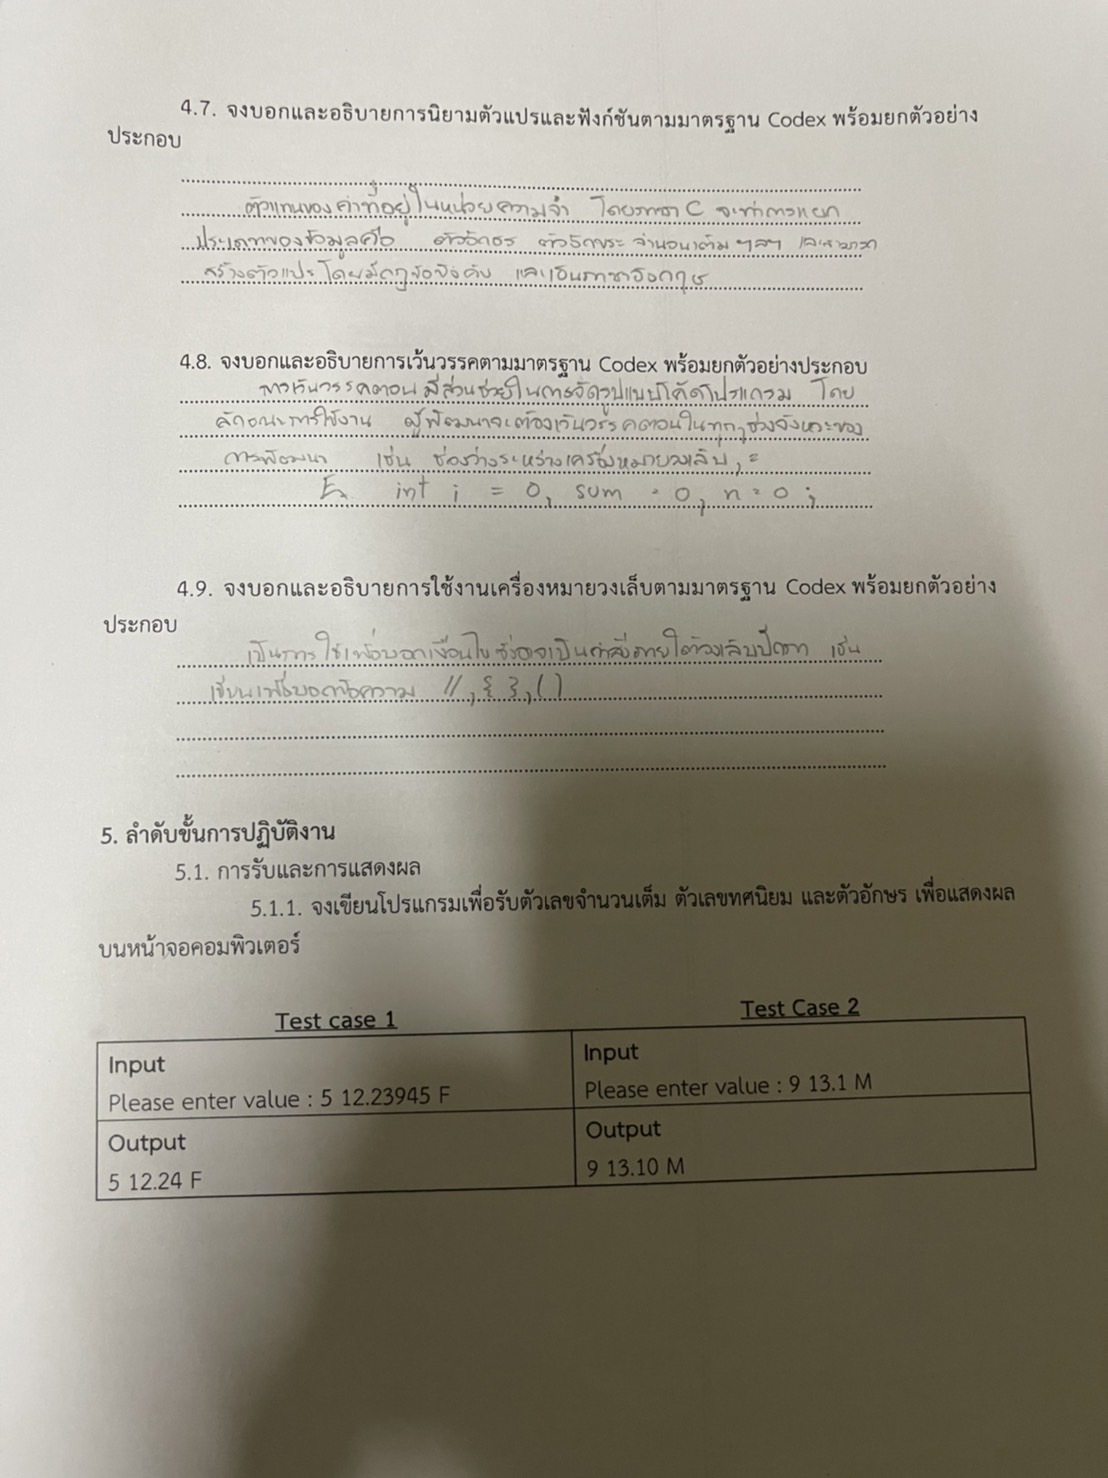 4.7. จงบอกและอธิบายการนิยามตัวแปรและฟังก์ชันตามมาตรฐาน Codex พร้อมยกตัวอย่าง
ประกอบ
ตัวแทนของค่าที่อยู่ในหน่วยความจำ โดยภาษา C จะทำการแยก
ประเภทของข้อมูลคือ ตัวอักษร ตัวอักขระ จำนวนเต็ม ฯลฯ และสามารถ
สร้างตัวแปร โดยมีกฎข้อบังคับ และเป็นภาษาอังกฤษ
4.8. จงบอกและอธิบายการเว้นวรรคตามมาตรฐาน Codex พร้อมยกตัวอย่างประกอบ
การเว้นวรรคตอน มีส่วนช่วยในการจัดรูปแบบโค้ดโปรแกรม โดย
ลักษณะการใช้งาน ผู้พัฒนาจะต้องเว้นวรรคตอนในทุกๆช่วงจังหวะของ
การพัฒนา เช่น ช่องว่างระหว่างเครื่องหมายวงเล็บ, =
Ex int i = 0, sum = 0, n = 0 ;
4.9. จงบอกและอธิบายการใช้งานเครื่องหมายวงเล็บตามมาตรฐาน Codex พร้อมยกตัวอย่าง
ประกอบ
เป็นการใช้เพื่อบอกเงื่อนไข ซึ่งอาจเป็นคำสั่งภายใต้วงเล็บปีกกา เช่น
เขียนเพื่อบอกข้อความ //, { }, ( )
5. ลำดับขั้นการปฏิบัติงาน
5.1. การรับและการแสดงผล
5.1.1. จงเขียนโปรแกรมเพื่อรับตัวเลขจำนวนเต็ม ตัวเลขทศนิยม และตัวอักษร เพื่อแสดงผล
บนหน้าจอคอมพิวเตอร์
Test case 1
Input
Please enter value : 5 12.23945 F
Output
5 12.24 F
Test Case 2
Input
Please enter value : 9 13.1 M
Output
9 13.10 M